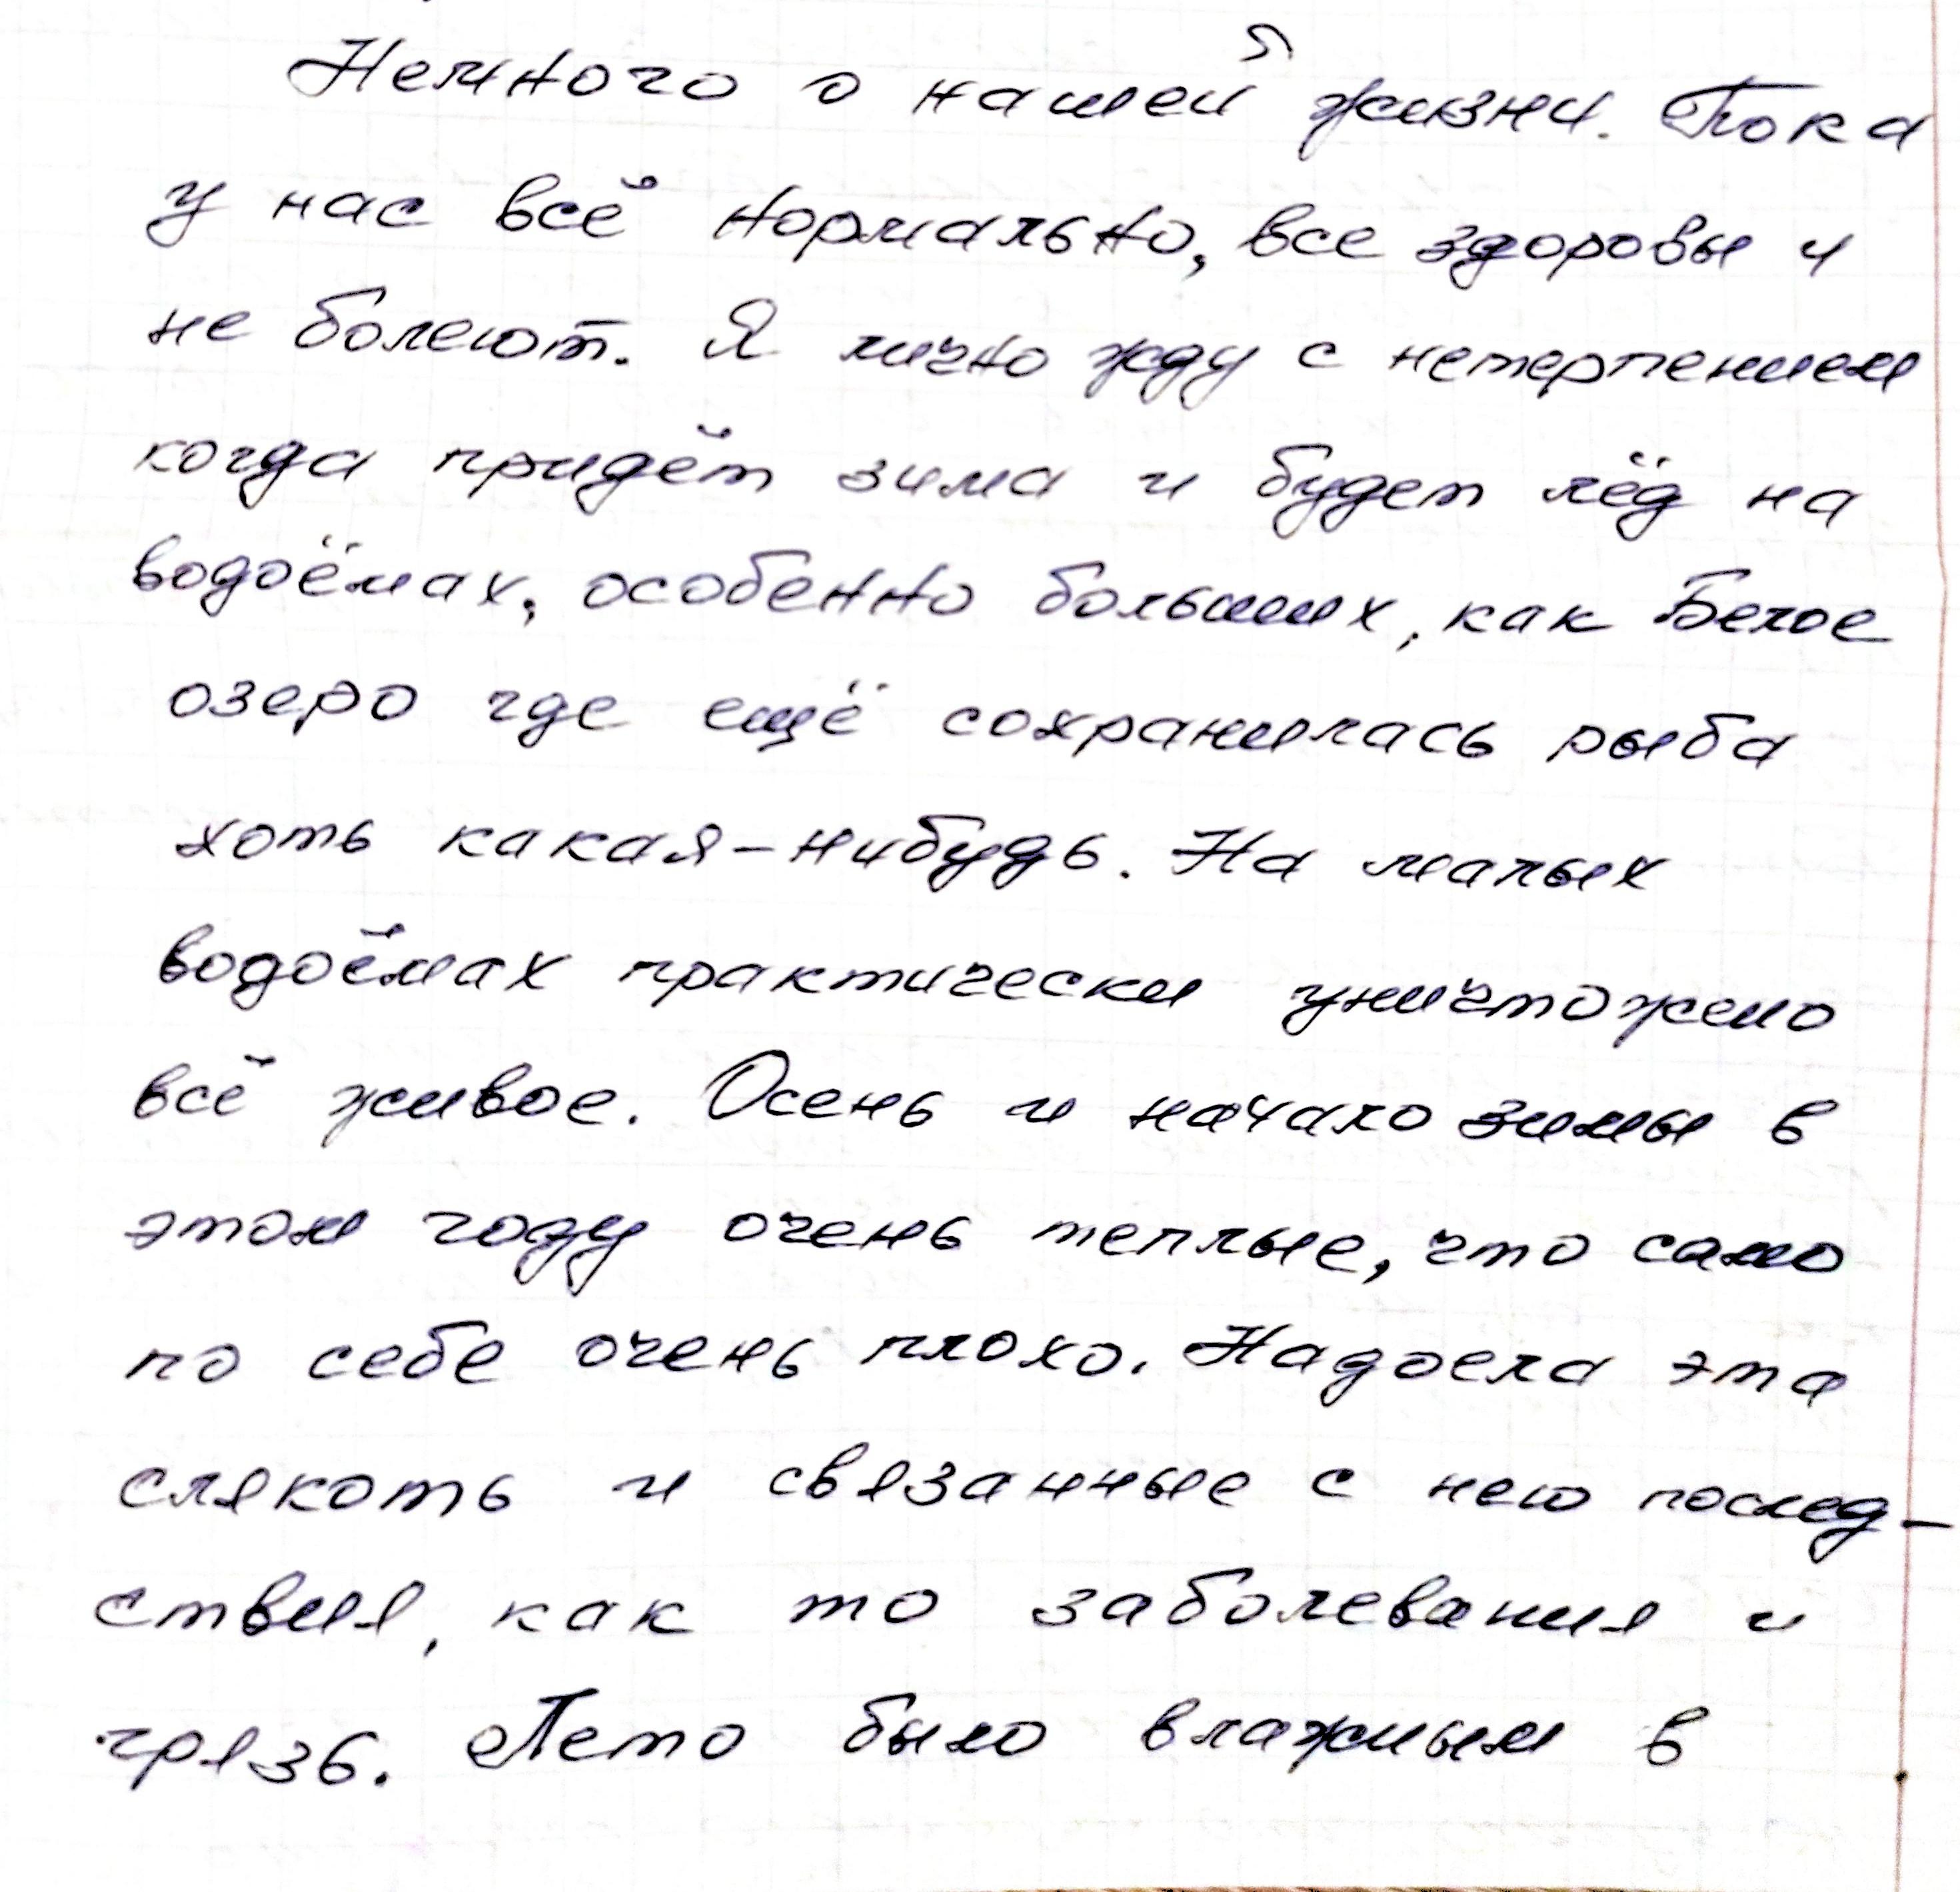 Немного о нашей жизни. Пока
у нас всё нормально, все здоровы и
не болеют. Я лично жду с нетерпением
когда придёт зима и будет лёд на
водоёмах, особенно больших, как Белое
озеро где ещё сохранилась рыба
хоть какая-нибудь. На малых
водоёмах практически уничтожено
всё живое. Осень и начало зимы в
этом году очень теплые, что само
по себе очень плохо. Надоела эта
слякоть и связанные с нею послед-
ствия, как то заболевания и
грязь. Лето было влажным в